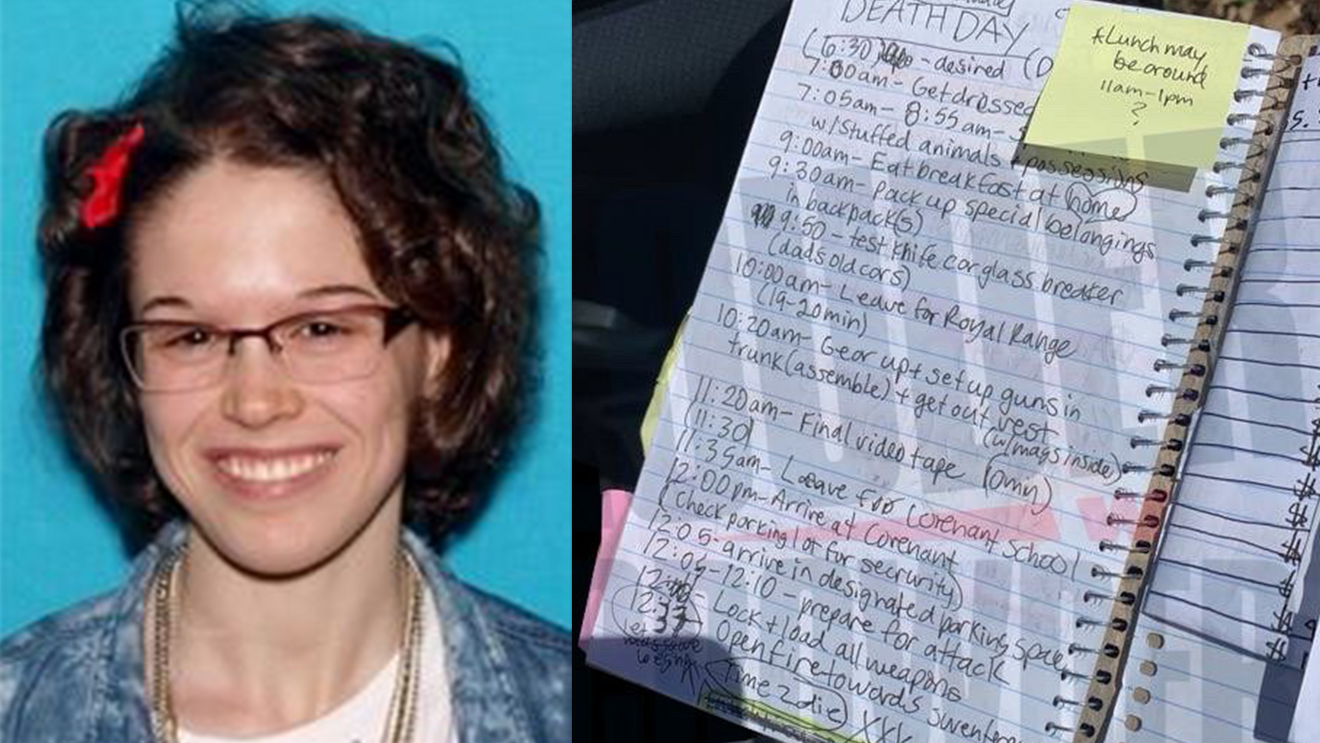 DEATH DAY
(6:30) - desired (D
7:00am - Get dressed
7:05am - 8:55 am -
w/stuffed animals + possessions
9:00am - Eat breakfast at home
9:30am - Pack up special belongings
in backpack(s)
9:50 - test knife car glass breaker
(dads old cars)
10:00am - Leave for Royal Range
(19-20min)
10:20am - Gear up + set up guns in
trunk (assemble) + get out vest
(w/mags inside)
11:20am - Final video tape (0mn)
(11:30)
11:35am - Leave for Covenant School
12:00pm - Arrive at Covenant
(check parking lot for secrurity)
12:05 - arrive in designated parking space
12:05 - 12:10 - prepare for attack
Lock + load all weapons
12:33 Open fire towards
Time 2 die) XXX
*Lunch may
be around
11am-1pm
?